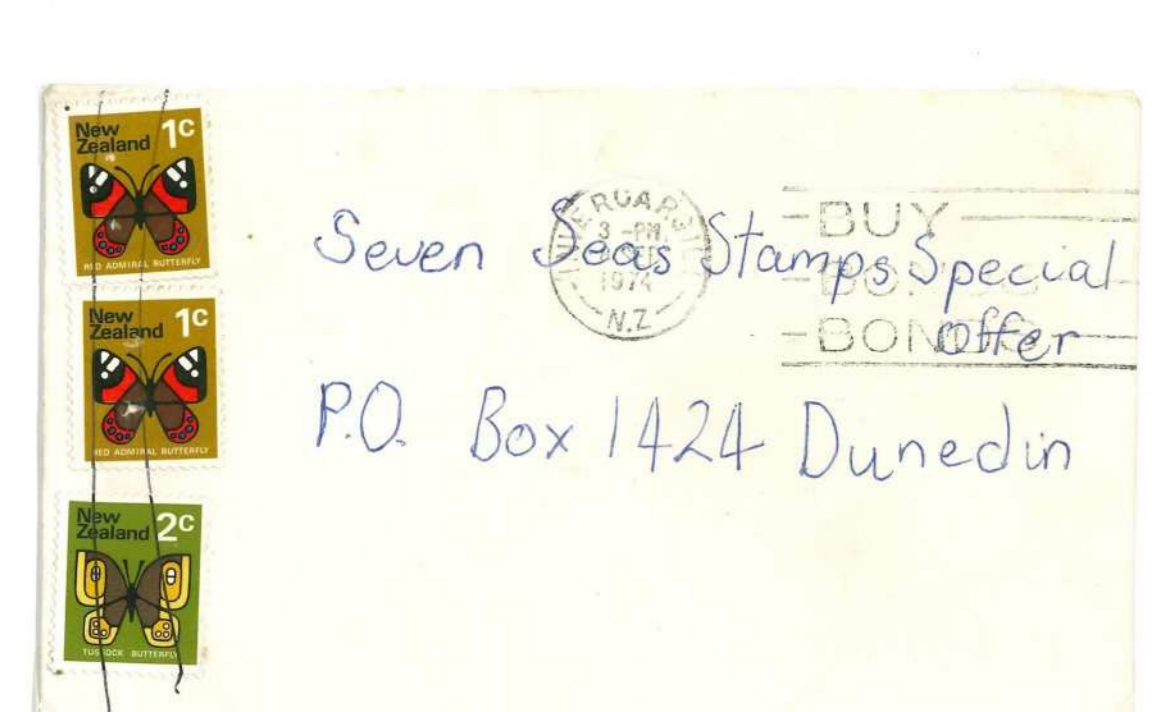 New Zealand 1c
RED ADMIRAL BUTTERFLY
New Zealand 1c
RED ADMIRAL BUTTERFLY
New Zealand 2c
TUSSOCK BUTTERFLY
3 -PM
1974
N.Z
BUY
BONUS
BONDS
Seven Seas Stamps Special
Offer
P.O. Box 1424 Dunedin